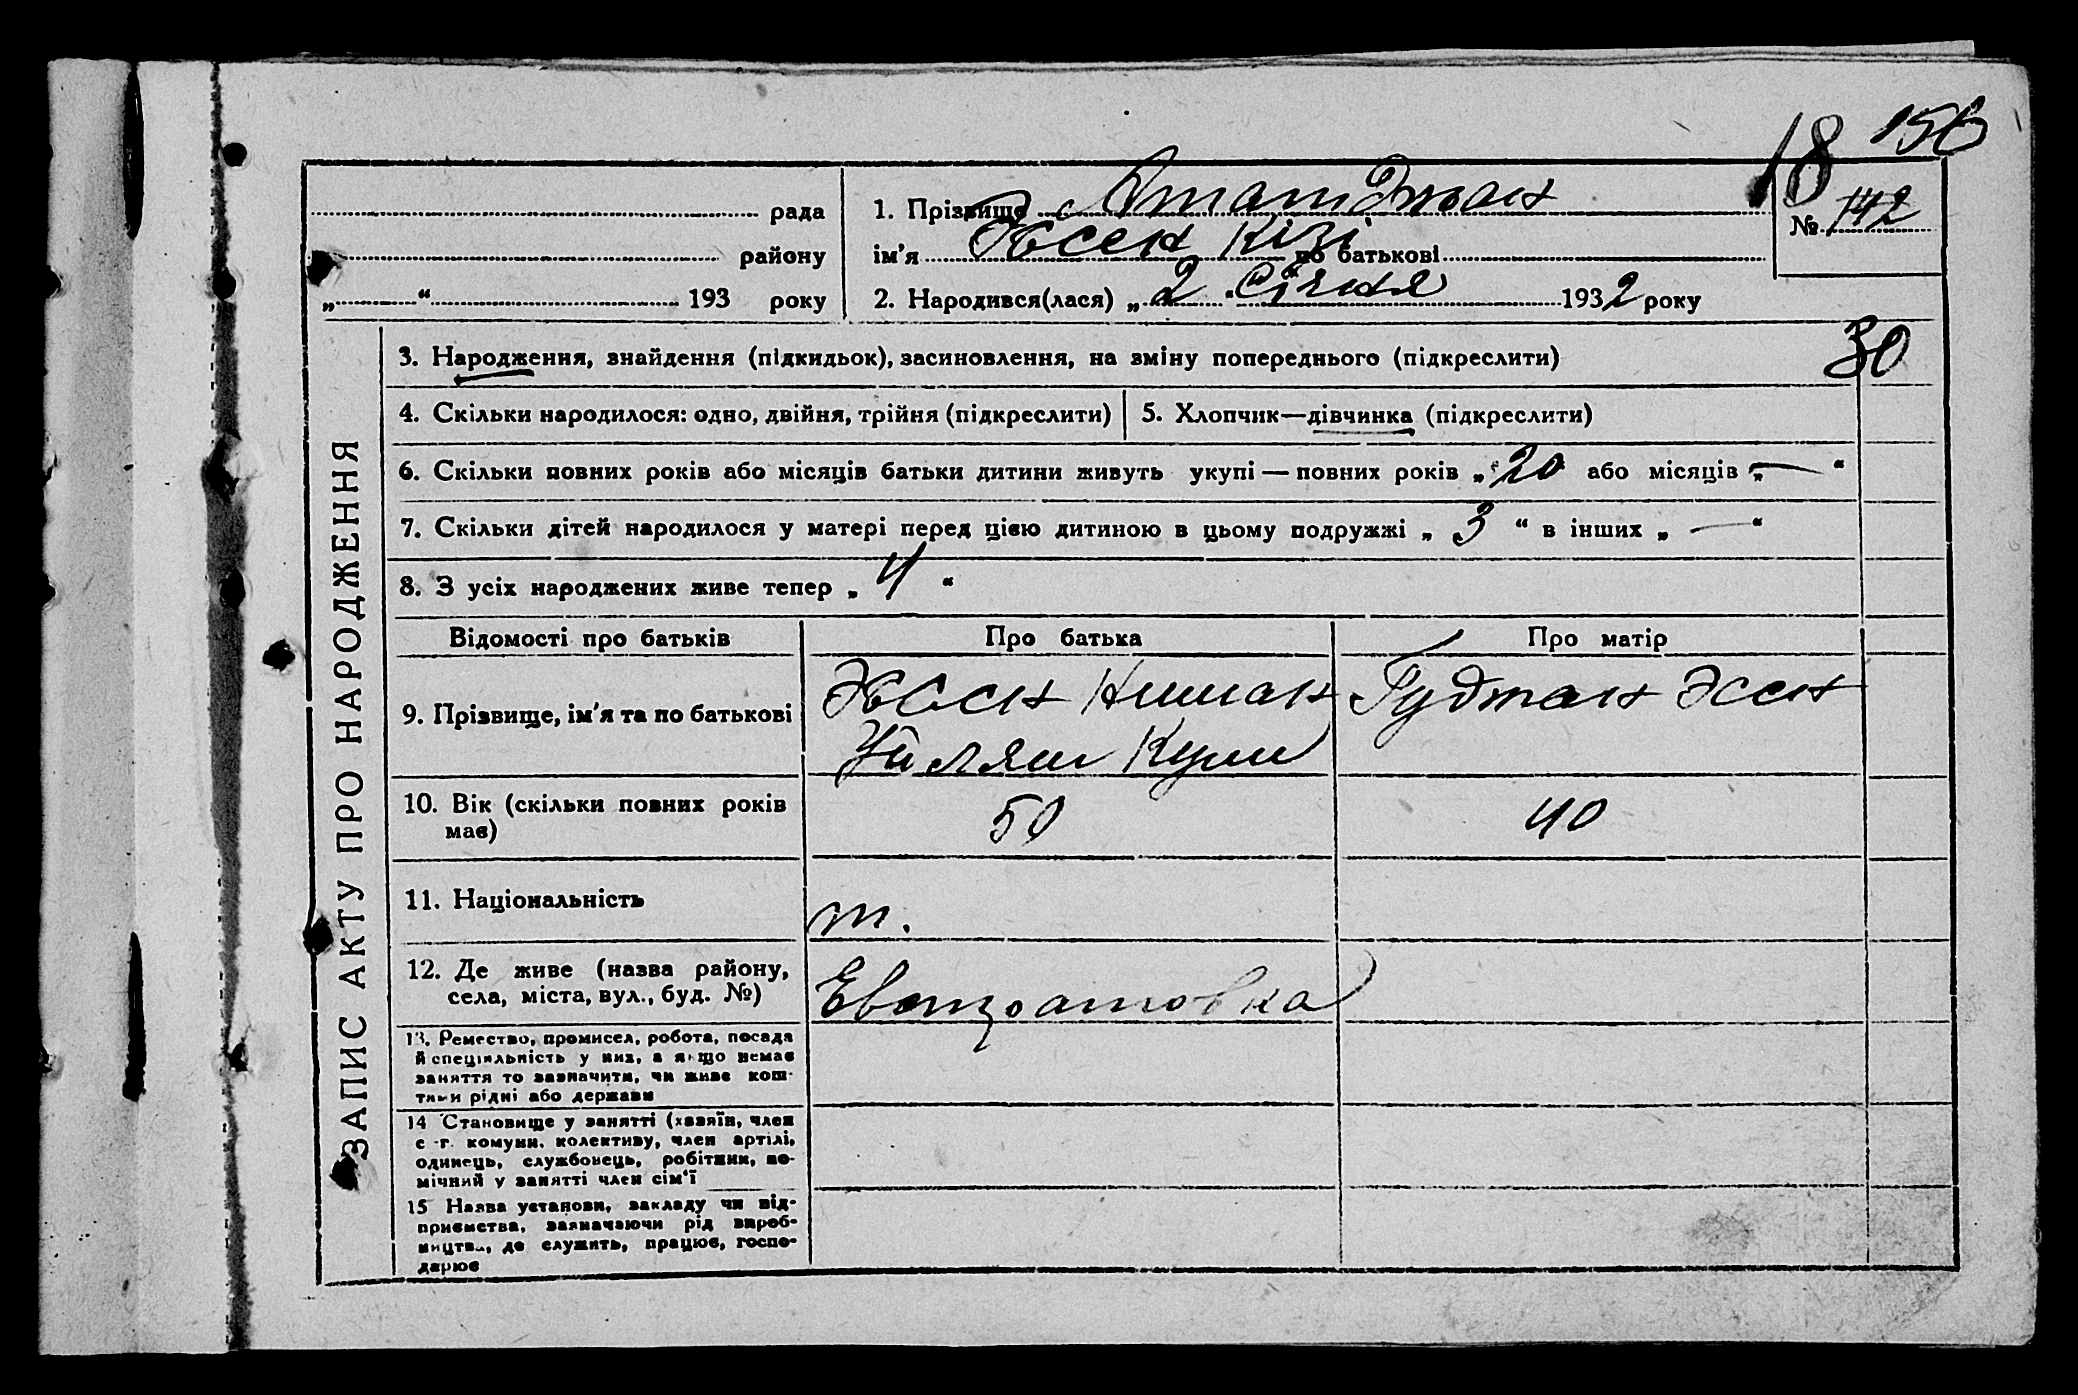 18 156
рада
району
„ “ 193 року
1. Прізвище Ататджан
ім'я Хосен Кізі по батькові
№ 142
2. Народився(лася) „ 2 “ Січня 1932 року
30
3. Народження, знайдення (підкидьок), засиновлення, на зміну попереднього (підкреслити)
4. Скільки народилося: одно, двійня, трійня (підкреслити)
5. Хлопчик—дівчинка (підкреслити)
6. Скільки повних років або місяців батьки дитини живуть укупі — повних років „ 20 або місяців „ — “
7. Скільки дітей народилося у матері перед цією дитиною в цьому подружжі „ 3 “ в інших „ — “
8. З усіх народжених живе тепер „ 4 “
ЗАПИС АКТУ ПРО НАРОДЖЕННЯ
Відомості про батьків
Про батька
Про матір
9. Прізвище, ім'я та по батькові
Кули
10. Вік (скільки повних років
має)
50
40
11. Національність
т.
12. Де живе (назва району,
села, міста, вул., буд. №)
13. Ремество, промисел, робота, посада
й спеціяльність у них, а якщо немає
заняття то зазначити, чи живе кош-
тами рідні або держави
14 Становище у занятті (хазяїн, член
с.-г. комуни, колективу, член артілі,
одинець, службовець, робітник, по-
мічний у занятті член сім'ї
15 Назва установи, закладу чи від-
приємства, зазначаючи рід вироб-
ництва, де служить, працює, госпо-
дарює